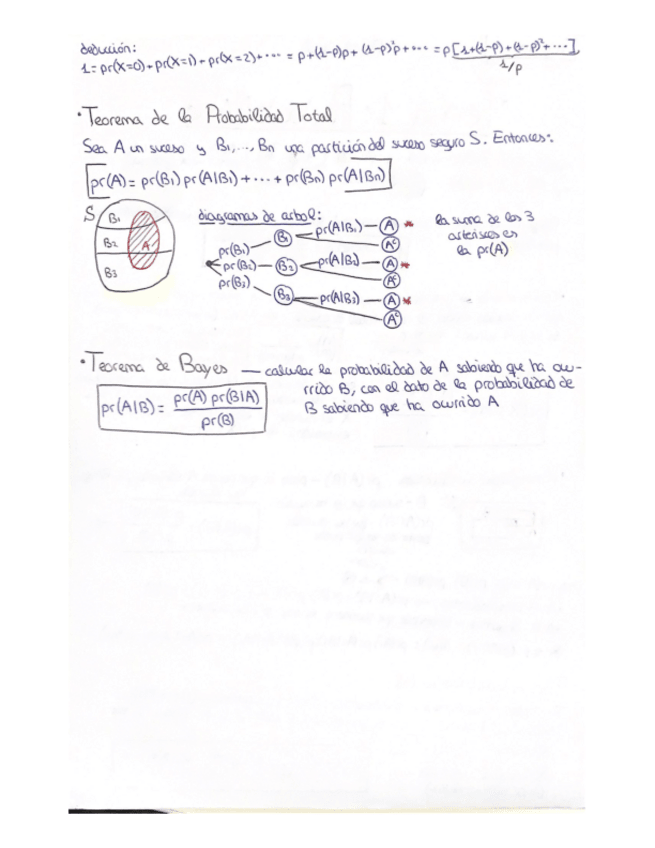 deducción:
1 = pr(X=0) + pr(X=1) + pr(X=2) + ... = p + (1-p)p + (1-p)²p + ... = p[1 + (1-p) + (1-p)² + ...]
1/p
· Teorema de la Probabilidad Total
Sea A un suceso y B₁, ..., Bn una partición del suceso seguro S. Entonces:
pr(A) = pr(B₁) pr(A|B₁) + ... + pr(Bn) pr(A|Bn)
S
B₁
B₂
A
B₃
diagramas de arbol:
pr(B₁)
B₁
pr(A|B₁)
A *
Aᶜ
pr(B₂)
B₂
pr(A|B₂)
A *
Aᶜ
pr(B₃)
B₃
pr(A|B₃)
A *
Aᶜ
la suma de los 3
asteriscos es
la pr(A)
· Teorema de Bayes — calcular la probabilidad de A sabiendo que ha ocu-
rrido B, con el dato de la probabilidad de
B sabiendo que ha ocurrido A
pr(A|B) = pr(A) pr(B|A) / pr(B)